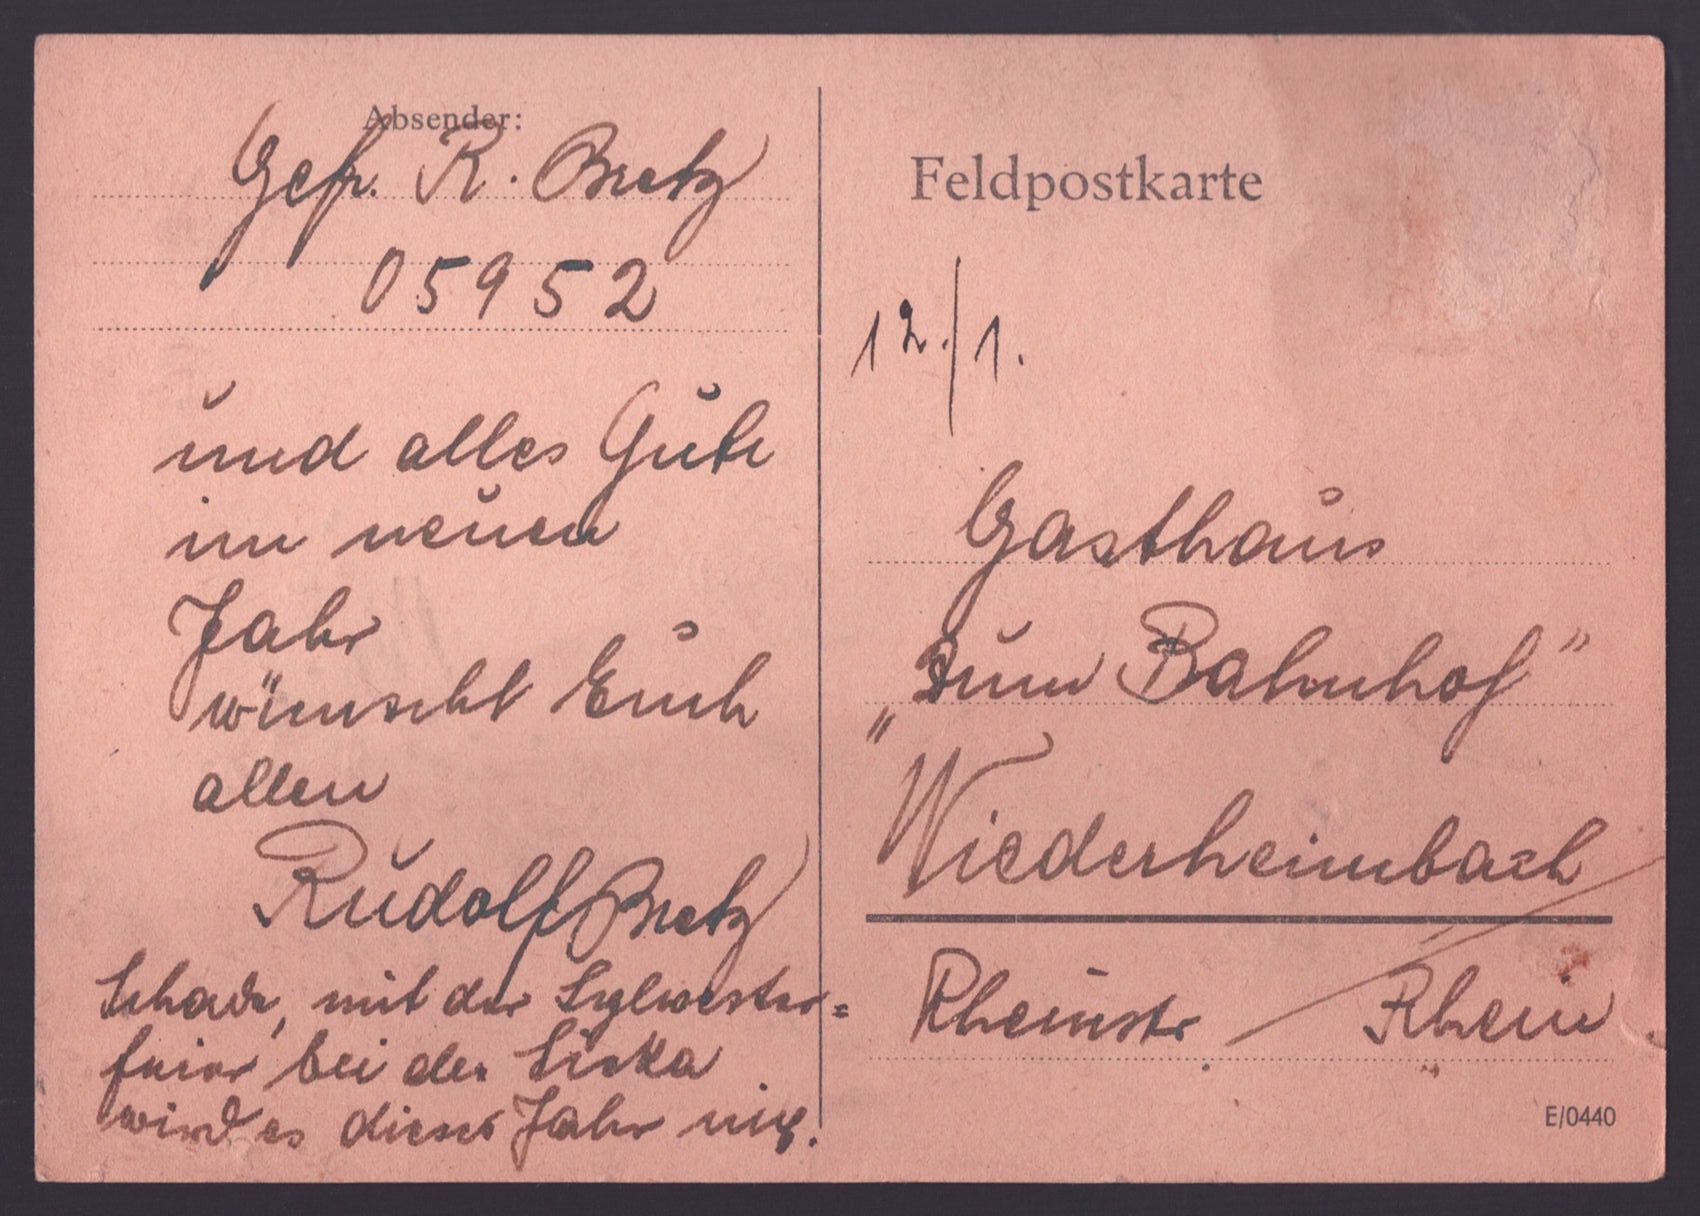 Absender:
Gefr. R. Bretz
05952
und alles Gute
im neuen
Jahr
wünscht Euch
allen
Rudolf Bretz
Schade, mit der Sylwester=
feier bei der Siska
wird es dieses Jahr nix.
Feldpostkarte
12./1.
Gasthaus
„Zum Bahnhof”
Niederheimbach
Rheinstr. / Rhein
E/0440